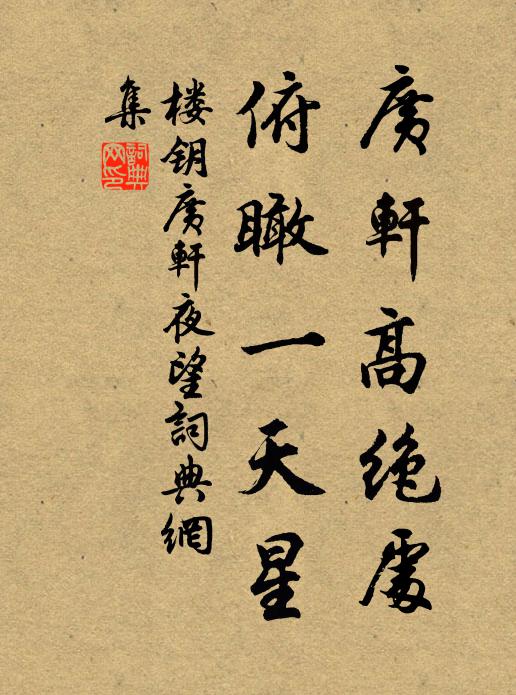 廣軒高絶處
俯瞰一天星
楼钥廣軒夜望詞典網
集
詞典网印